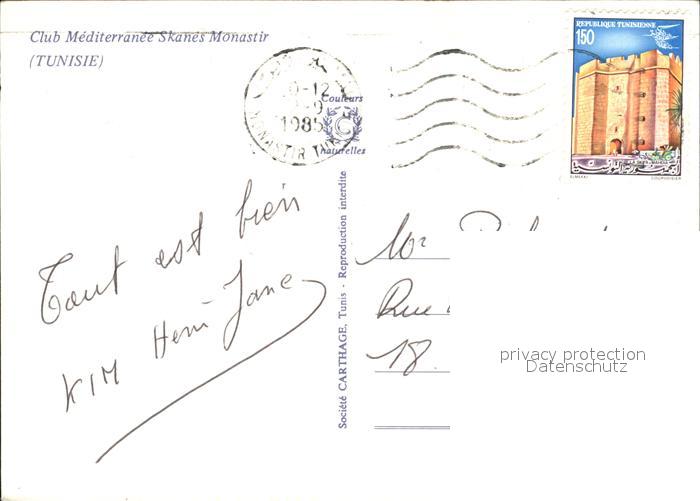 Club Méditerranée Skanés Monastir
(TUNISIE)
REPUBLIQUE TUNISIENNE
150
الجمهورية التونسية
ELMEKKI
COURVOISIER
9-12
1985
MONASTIR
Couleurs
C
naturelles
Société CARTHAGE, Tunis - Reproduction interdite
Tout est bien
KIM Henri Jane
Mr
Rue
18.
privacy protection
Datenschutz